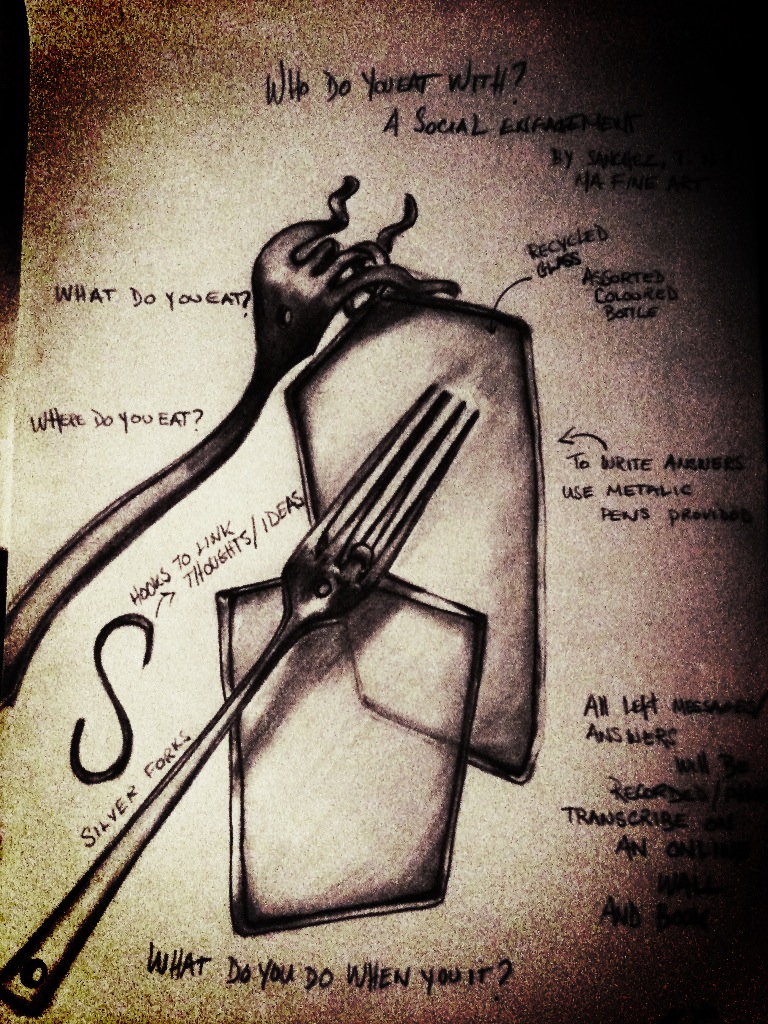 WHO DO YOU EAT WITH?
A SOCIAL ENGAGEMENT
BY SANCHEZ, T.
MA FINE ART
RECYCLED
GLASS
ASSORTED
COLOURED
BOTTLE
WHAT DO YOU EAT?
WHERE DO YOU EAT?
TO WRITE ANSWERS
USE METALIC
PENS PROVIDED
HOOKS TO LINK
THOUGHTS/IDEAS
SILVER FORKS
All left MESSAGES/
ANSWERS
Will BE
RECORDED/
TRANSCRIBE ON
AN ONLINE
WALL
AND BOOK
WHAT DO YOU DO WHEN YOU IT?